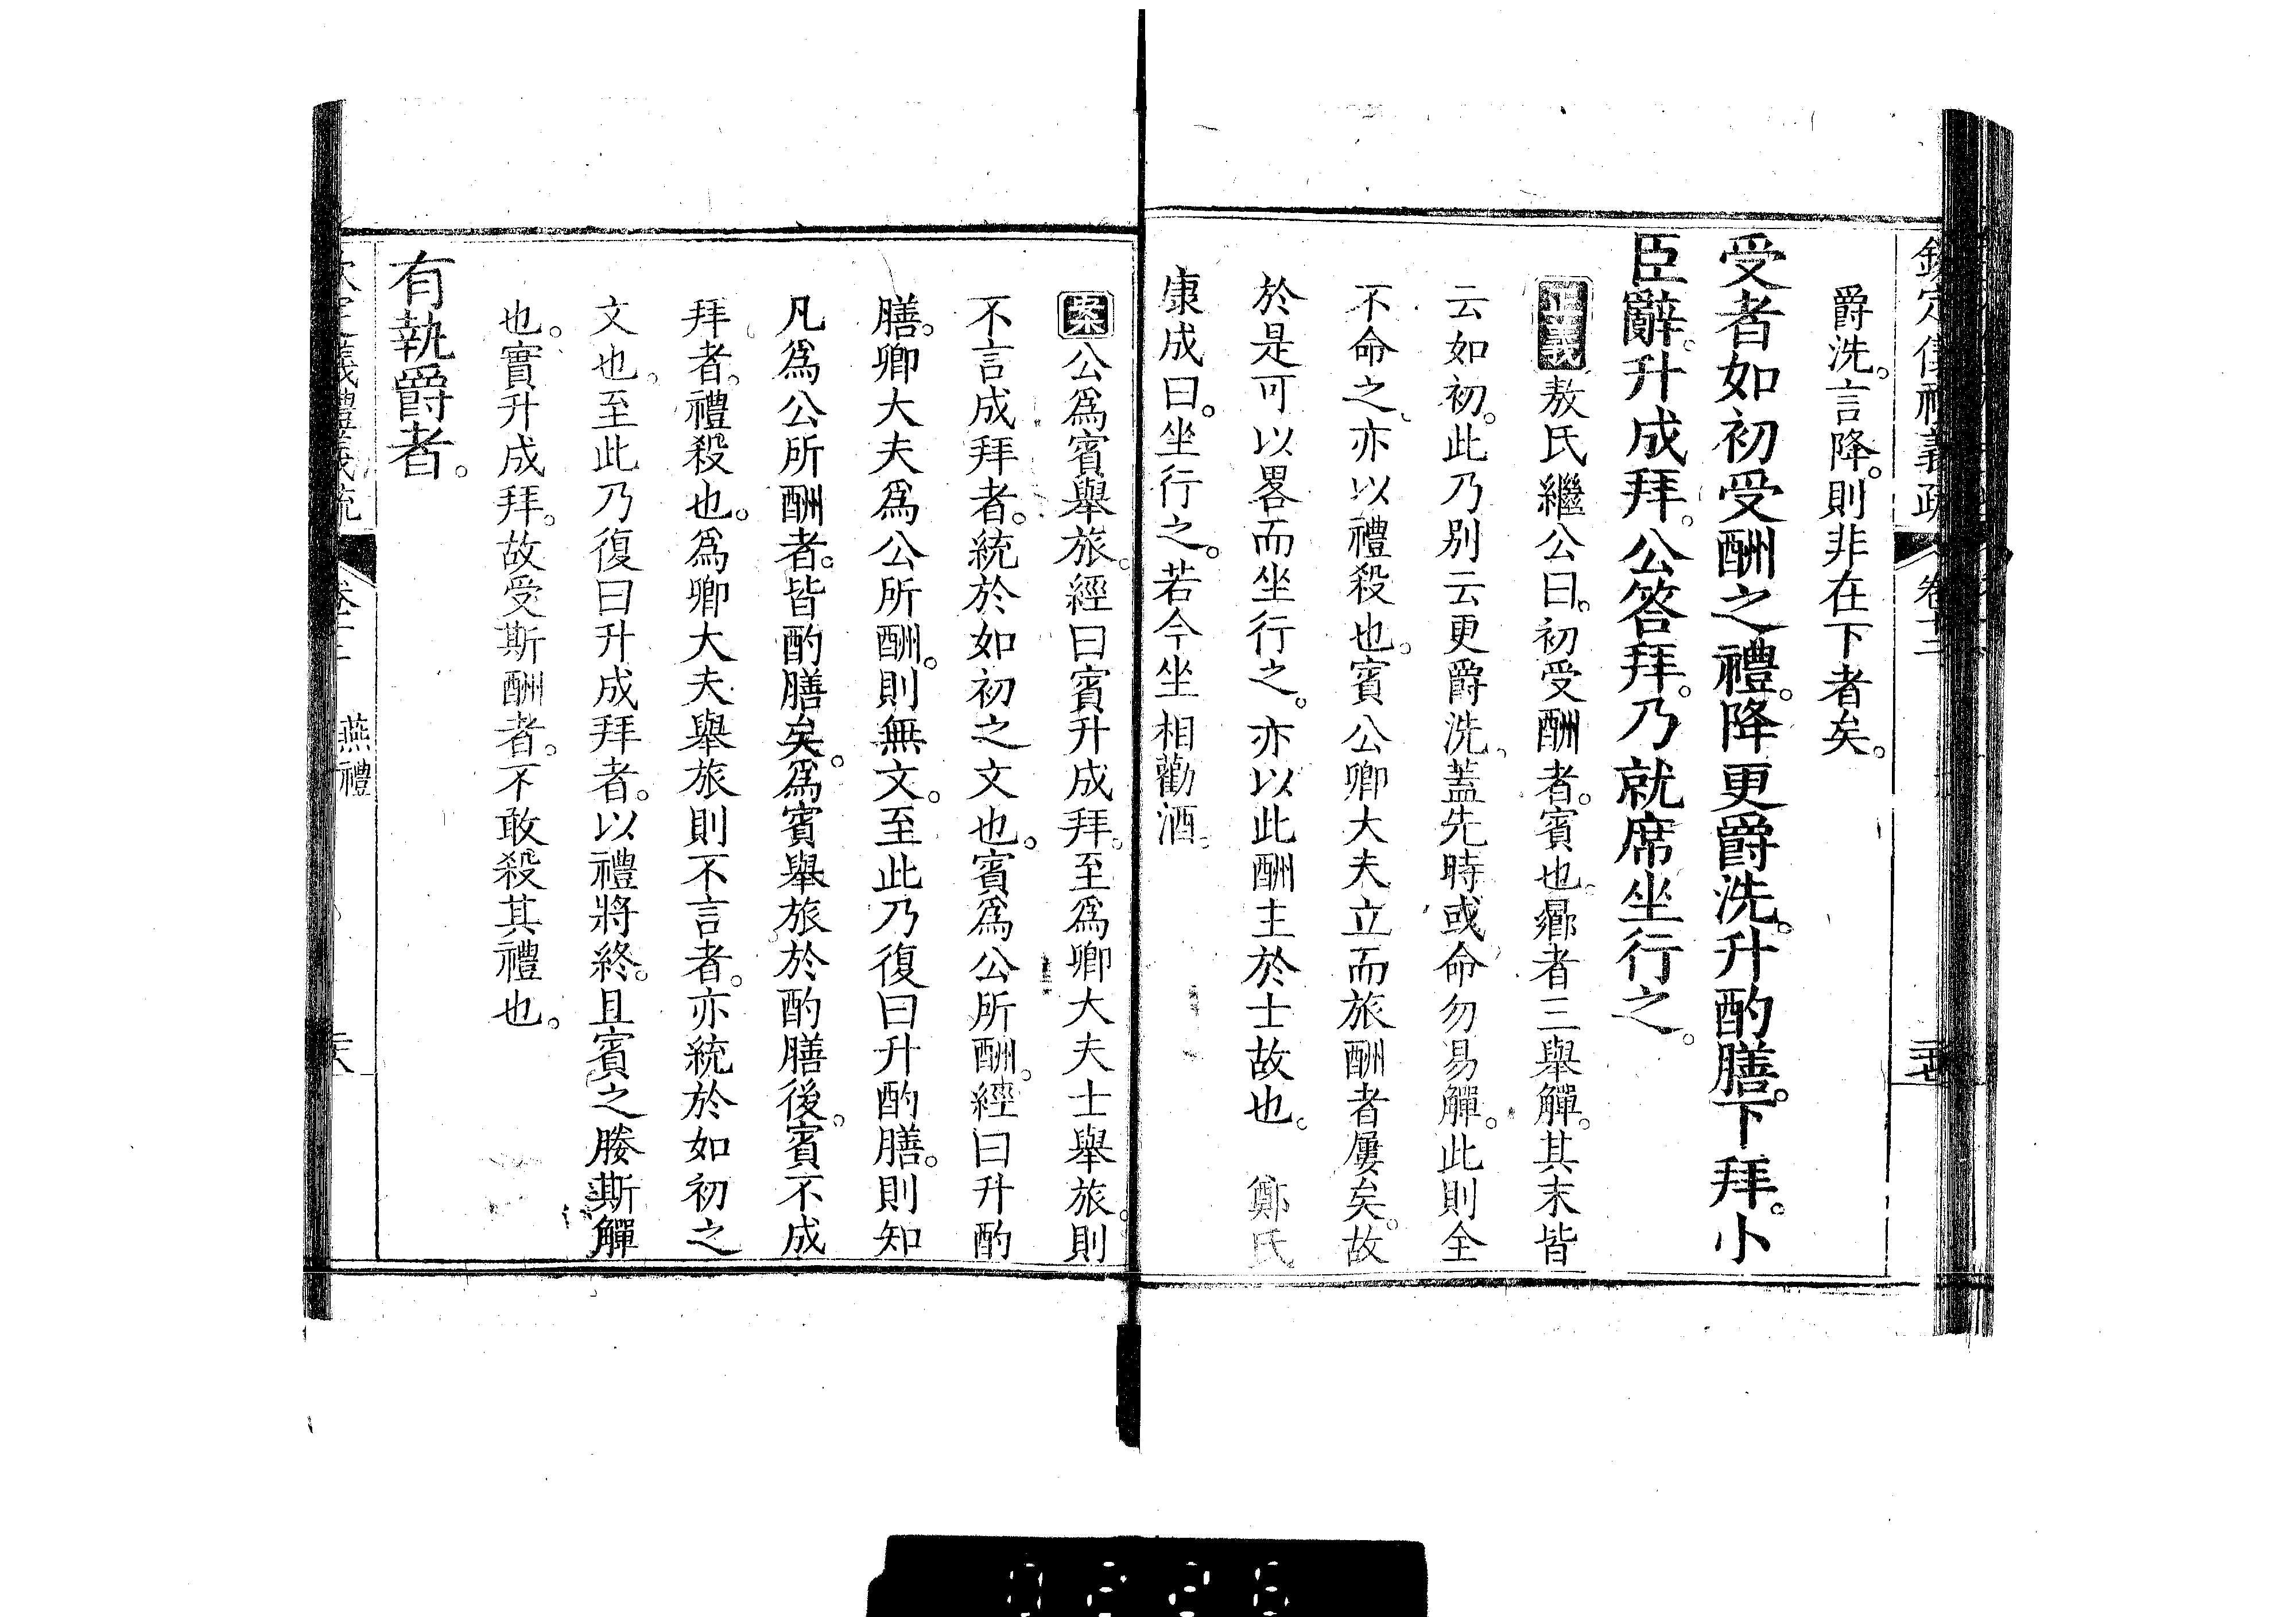 欽定儀禮義疏 卷十二
爵洗。言降。則非在下者矣。
受者如初受酬之禮。降更爵洗。升酌膳。下拜。小
臣辭。升成拜。公答拜。乃就席坐行之。
正義敖氏繼公曰。初受酬者。賓也。曏者三舉觶。其末皆
云如初。此乃別云更爵洗。蓋先時或命勿易觶。此則全
不命之。亦以禮殺也。賓公卿大夫立而旅酬者屢矣。故
於是可以畧而坐行之。亦以此酬主於士故也。 鄭氏
康成曰。坐行之。若今坐相勸酒。
案公爲賓舉旅。經曰賓升成拜。至爲卿大夫士舉旅。則
不言成拜者。統於如初之文也。賓爲公所酬。經曰升酌
膳。卿大夫爲公所酬。則無文。至此乃復曰升酌膳。則知
凡爲公所酬者。皆酌膳矣。爲賓舉旅於酌膳後。賓不成
拜者。禮殺也。爲卿大夫舉旅則不言者。亦統於如初之
文也。至此乃復曰升成拜者。以禮將終。且賓之媵斯觶
也。實升成拜。故受斯酬者。不敢殺其禮也。
有執爵者。
燕禮